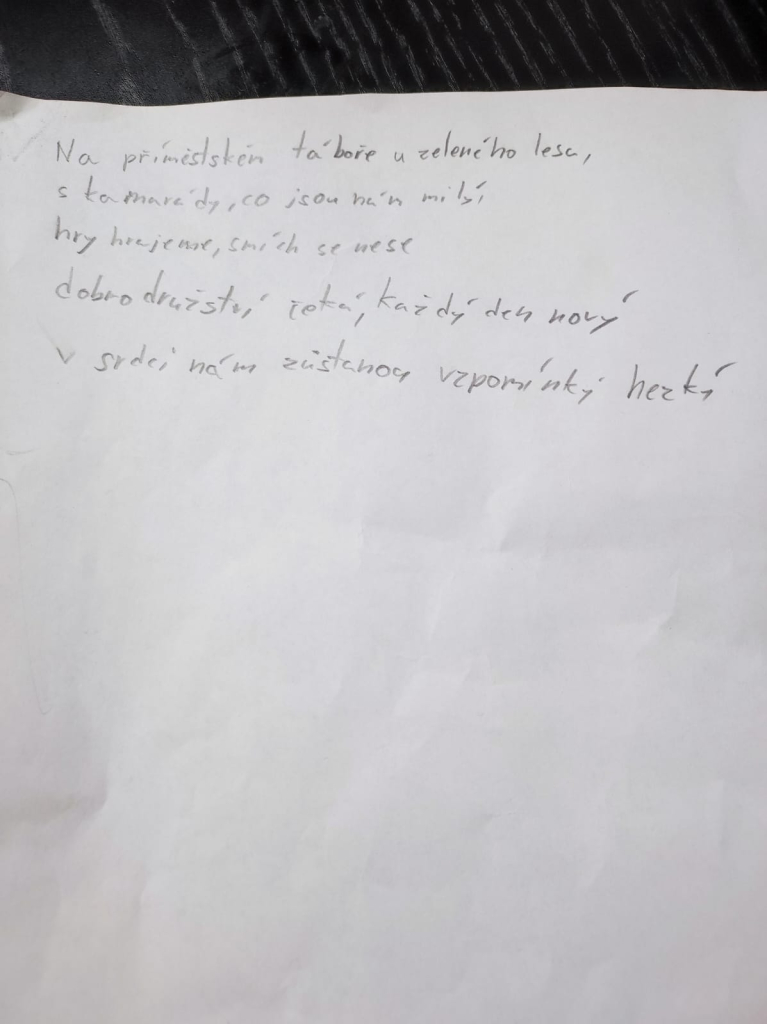 Na příměstském táboře u zeleného lesa,
s kamarády, co jsou nám milý,
hry hrajeme, smích se nese
dobrodružství čeká, každý den nový
v srdci nám zůstanou vzpomínky hezký